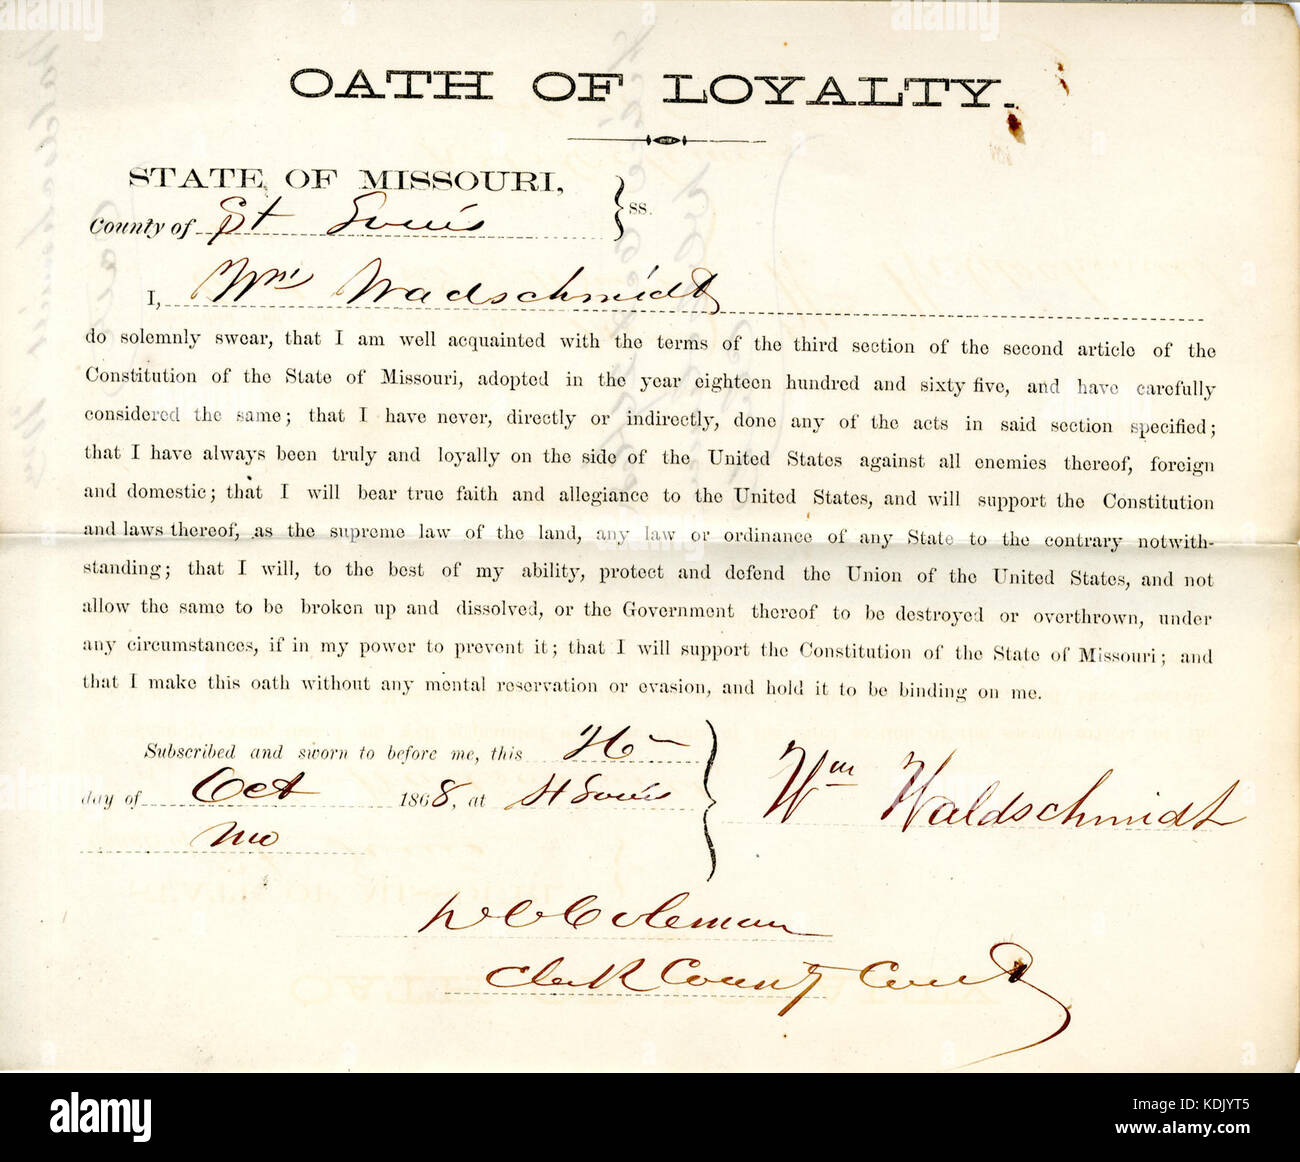 OATH OF LOYALTY.
STATE OF MISSOURI,
County of St Louis } ss.
I, Wm Wadschmidt
do solemnly swear, that I am well acquainted with the terms of the third section of the second article of the
Constitution of the State of Missouri, adopted in the year eighteen hundred and sixty five, and have carefully
considered the same; that I have never, directly or indirectly, done any of the acts in said section specified;
that I have always been truly and loyally on the side of the United States against all enemies thereof, foreign
and domestic; that I will bear true faith and allegiance to the United States, and will support the Constitution
and laws thereof, as the supreme law of the land, any law or ordinance of any State to the contrary notwith-
standing; that I will, to the best of my ability, protect and defend the Union of the United States, and not
allow the same to be broken up and dissolved, or the Government thereof to be destroyed or overthrown, under
any circumstances, if in my power to prevent it; that I will support the Constitution of the State of Missouri; and
that I make this oath without any mental reservation or evasion, and hold it to be binding on me.
Subscribed and sworn to before me, this 26
day of Oct 1868, at St Louis
Mo
Wm Waldschmidt
Coleman
Clerk County Court
alamy
Image ID: KDJYT5
www.alamy.com